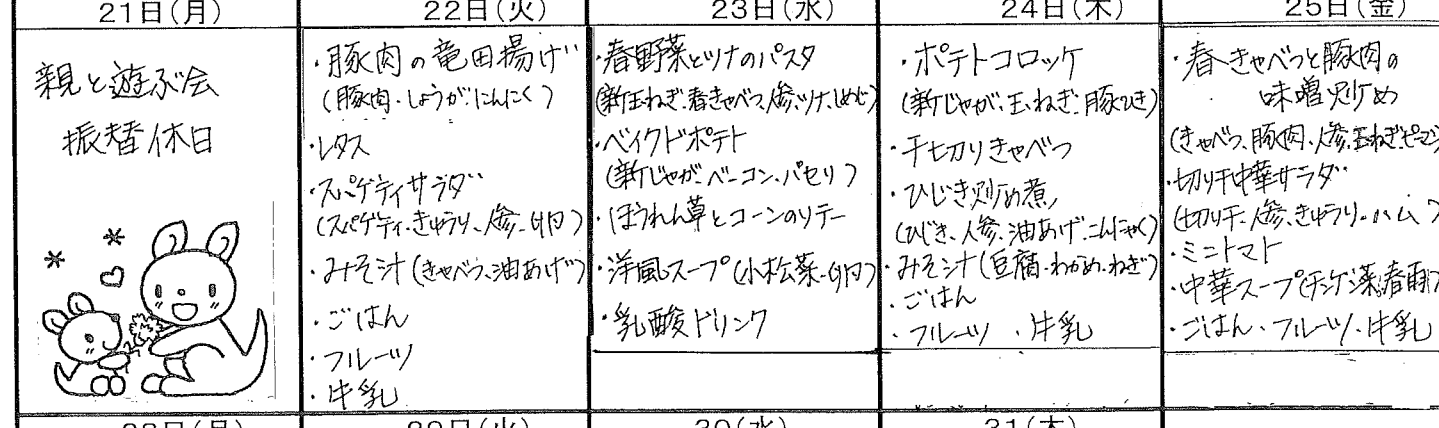 21日(月)
親と遊ぶ会
振替休日
22日(火)
・豚肉の竜田揚げ
(豚肉・しょうが・にんにく)
・レタス
・スパゲティサラダ
(スパゲティ・きゅうり・人参・卵)
・みそ汁(きゃべつ・油あげ)
・ごはん
・フルーツ
・牛乳
23日(水)
・春野菜とツナのパスタ
(新玉ねぎ・春きゃべつ・人参・ツナ・しめじ)
・ベイクドポテト
(新じゃが・ベーコン・パセリ)
・ほうれん草とコーンのソテー
・洋風スープ(小松菜・卵)
・乳酸ドリンク
24日(木)
・ポテトコロッケ
(新じゃが・玉ねぎ・豚ひき)
・千切りきゃべつ
・ひじき炒め煮
(ひじき・人参・油あげ・こんにゃく)
・みそ汁(豆腐・わかめ・ねぎ)
・ごはん
・フルーツ ・牛乳
25日(金)
・春きゃべつと豚肉の
味噌炒め
(きゃべつ・豚肉・人参・玉ねぎ・ピーマン)
・切り干中華サラダ
(切り干・人参・きゅうり・ハム)
・ミニトマト
・中華スープ(チンゲン菜・春雨)
・ごはん・フルーツ・牛乳
28日(月)
29日(火)
30(水)
31(木)